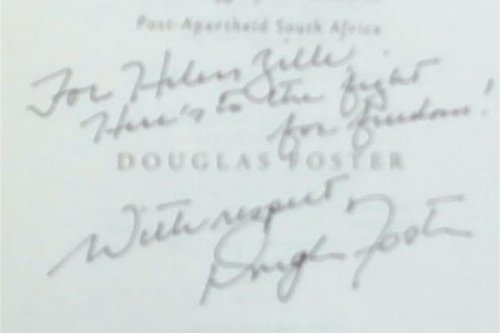 Post-Apartheid South Africa
For Helen Zille,
Here's to the fight
for freedom!
DOUGLAS FOSTER
With respect,
Douglas Foster